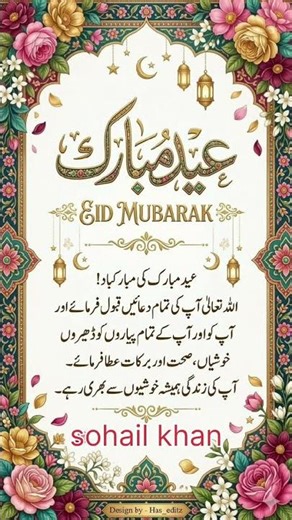 عید مبارک
EID MUBARAK
عید مبارک کی مبارکباد!
اللہ تعالیٰ آپ کی تمام دعائیں قبول فرمائے اور
آپ کو اور آپ کے تمام پیاروں کو ڈھیروں
خوشیاں، صحت اور برکات عطا فرمائے۔
آپ کی زندگی ہمیشہ خوشیوں سے بھری رہے۔
sohail khan
Design by - Has_editz